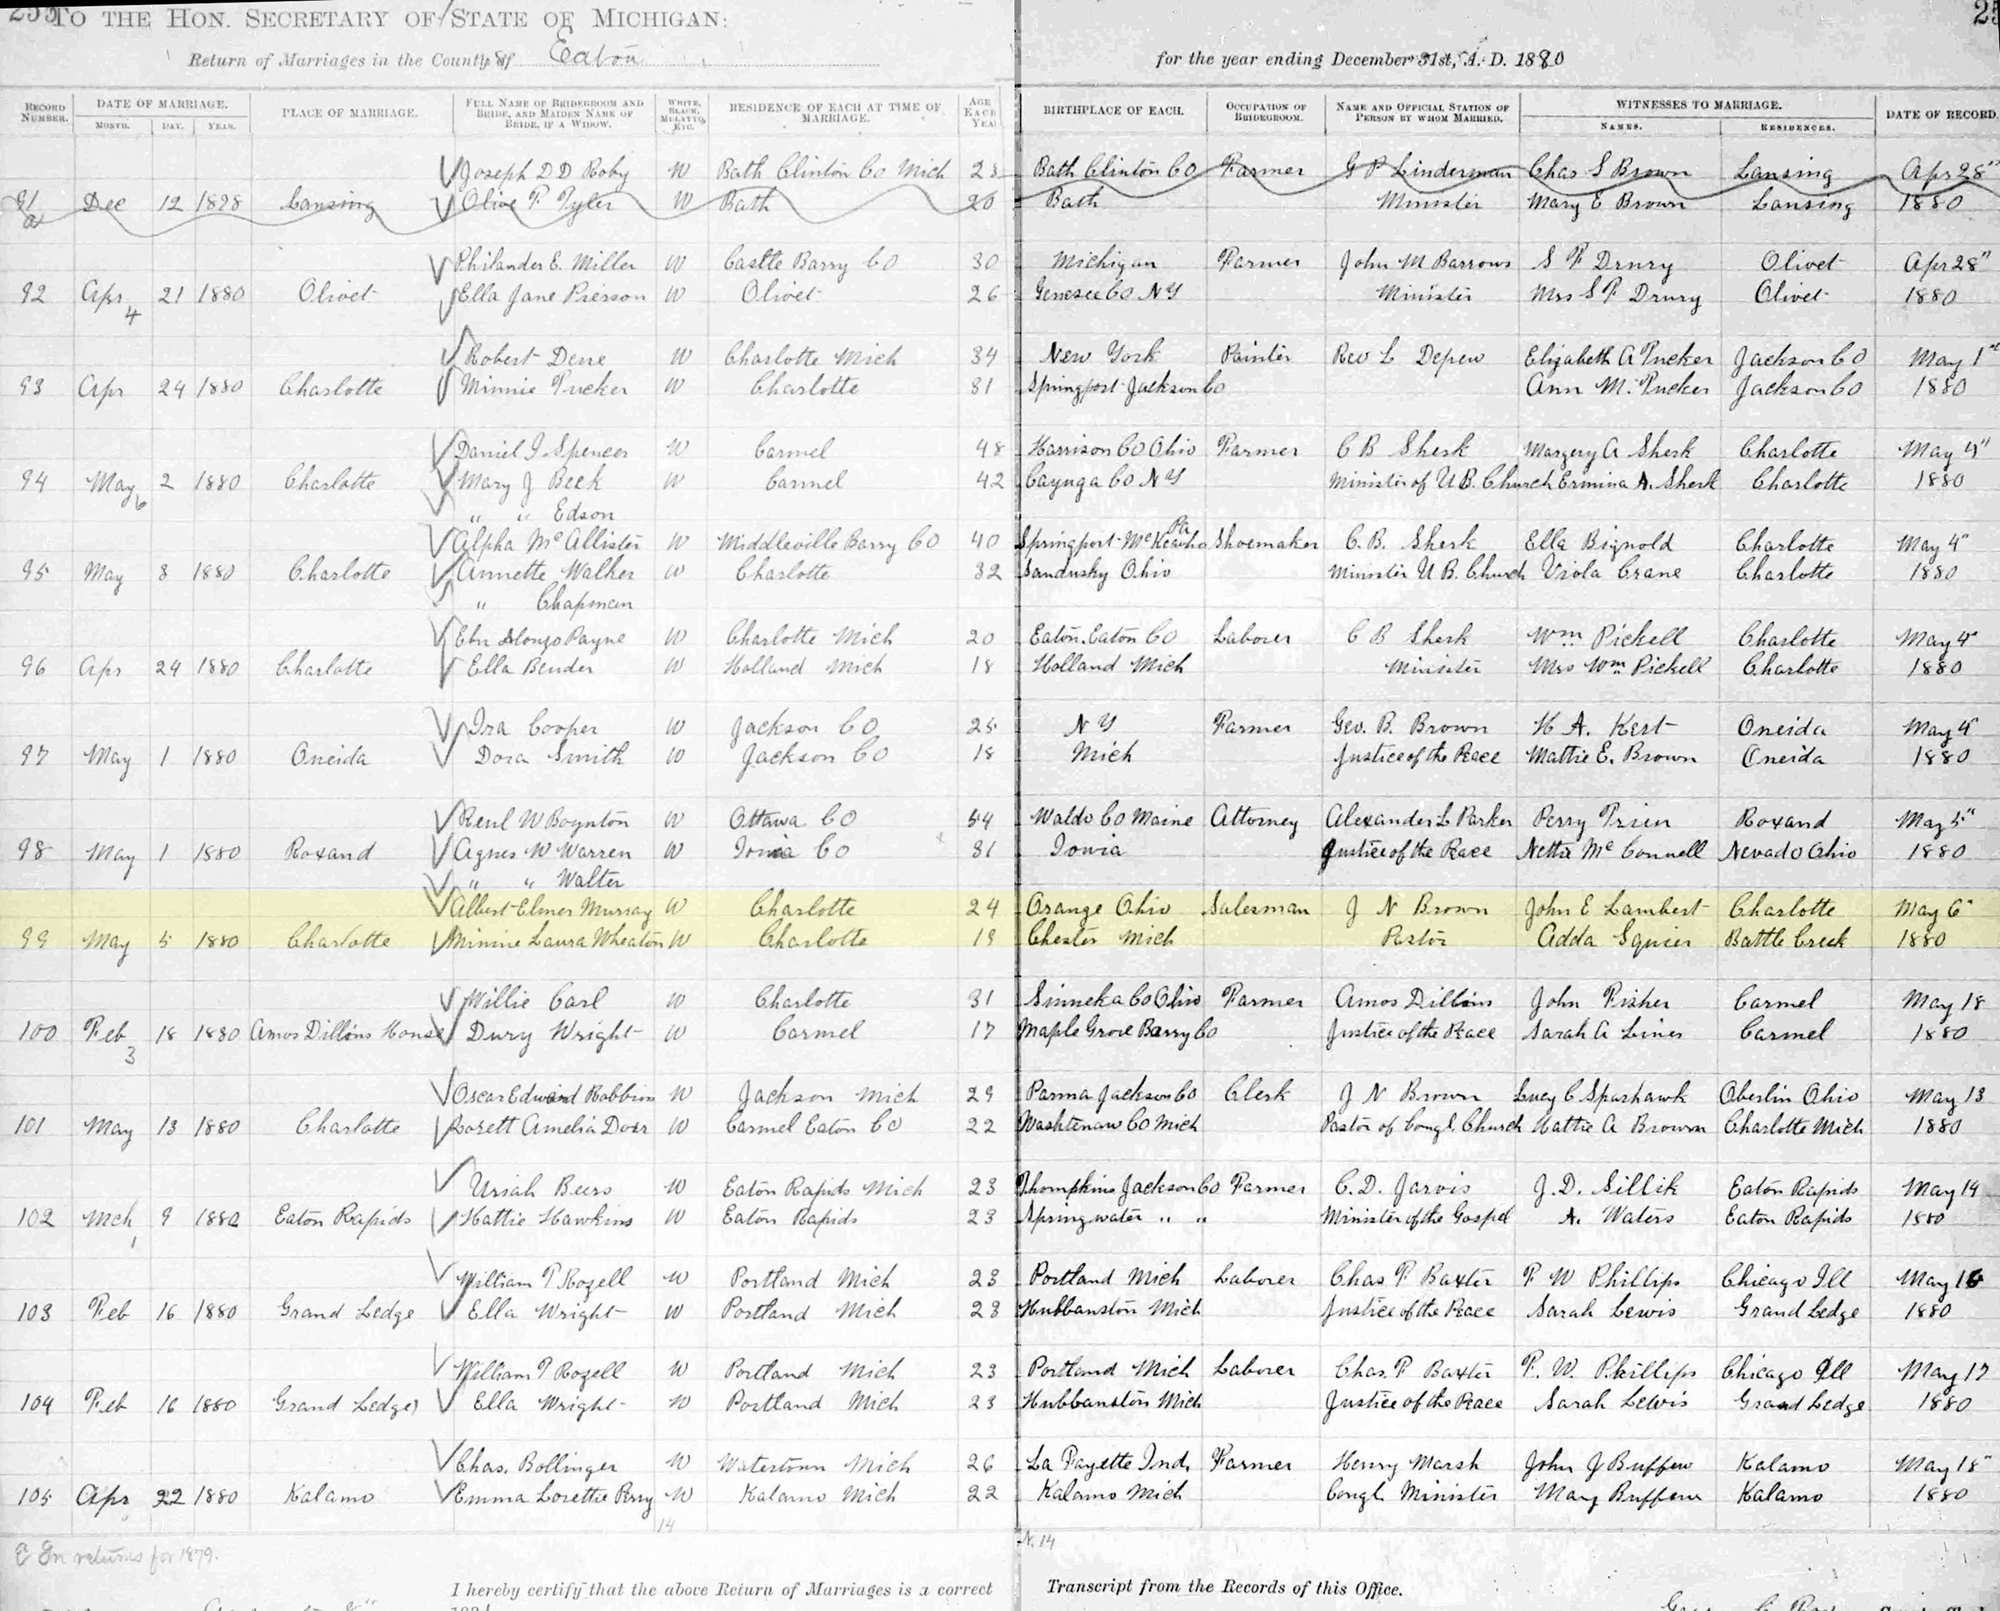 255
TO THE HON. SECRETARY OF STATE OF MICHIGAN:
Return of Marriages in the County of Eaton for the year ending December 31st, A. D. 1880
RECORD NUMBER. DATE OF MARRIAGE. MONTH. DAY. YEAR. PLACE OF MARRIAGE. FULL NAME OF BRIDEGROOM AND BRIDE, AND MAIDEN NAME OF BRIDE, IF A WIDOW. WHITE, BLACK, MULATTO, ETC. RESIDENCE OF EACH AT TIME OF MARRIAGE. AGE EACH YEAR BIRTHPLACE OF EACH. OCCUPATION OF BRIDEGROOM. NAME AND OFFICIAL STATION OF PERSON BY WHOM MARRIED. WITNESSES TO MARRIAGE. NAMES. RESIDENCES. DATE OF RECORD.
Joseph D D Roby W Bath Clinton Co Mich 23 Bath Clinton Co Farmer G P Linderman Chas S Brown Lansing Apr 28"
91 Dec 12 1878 Lansing Olive P. Tyler W Bath 20 Bath Minister Mary E Brown Lansing 1880
Philander E. Miller W Castle Barry Co 30 Michigan Farmer John M Barrows S F Drury Olivet Apr 28"
92 Apr 21 1880 Olivet Ella Jane Pierson W Olivet 26 Genesee Co NY Minister Mrs S F Drury Olivet 1880
4
Robert Dene W Charlotte Mich 34 New York Painter Rev L Depew Elizabeth A Tucker Jackson Co May 1st
93 Apr 24 1880 Charlotte Minnie Tucker W Charlotte 31 Springport Jackson Co Ann M. Tucker Jackson Co 1880
Daniel J Spencer W Carmel 48 Harrison Co Ohio Farmer C B Sherk Margery A Sherk Charlotte May 4"
94 May 2 1880 Charlotte Mary J Beck W Carmel 42 Cayuga Co NY Minister of U B. Church Ermina A. Sherk Charlotte 1880
6 " " Edson
Alpha McAllister W Middleville Barry Co 40 Springport McKean Co Pa Shoemaker C. B. Sherk Ella Bignold Charlotte May 4"
95 May 3 1880 Charlotte Annette Walker W Charlotte 32 Sandusky Ohio Minister U B. Church Viola Crane Charlotte 1880
" Chapman
Ebn Alonzo Payne W Charlotte Mich 20 Eaton, Eaton Co Laborer C B Sherk Wm Pickell Charlotte May 4"
96 Apr 24 1880 Charlotte Ella Bender W Holland Mich 18 Holland Mich Minister Mrs Wm Pickell Charlotte 1880
Ira Cooper W Jackson Co 25 NY Farmer Geo. B. Brown H A. Kest Oneida May 4"
97 May 1 1880 Oneida Dora Smith W Jackson Co 18 Mich Justice of the Peace Mattie E. Brown Oneida 1880
Reul W Boynton W Ottawa Co 54 Waldo Co Maine Attorney Alexander L Parker Perry Trien Roxand May 5"
98 May 1 1880 Roxand Agnes W Warren W Ionia Co 31 Ionia Justice of the Peace Nettie McConnell Nevado Ohio 1880
" " Walter
Albert Elmer Murray W Charlotte 24 Orange Ohio Salesman J N Brown John E Lambert Charlotte May 6"
99 May 5 1880 Charlotte Minine Laura Wheaton W Charlotte 19 Chester Mich Pastor Adda Squier Battle Creek 1880
Willie Carl W Charlotte 31 Sinneka Co Ohio Farmer Amos Dillins John Fisher Carmel May 18
100 Feb 18 1880 Amos Dillins House Dury Wright W Carmel 17 Maple Grove Barry Co Justice of the Peace Sarah A Lines Carmel 1880
3
Oscar Edward Robbins W Jackson Mich 29 Parma Jackson Co Clerk J N Brown Lucy C Sparhawk Oberlin Ohio May 13
101 May 13 1880 Charlotte Lorett Amelia Dorr W Carmel Eaton Co 22 Washtenaw Co Mich Pastor of Congl. Church Hattie A Brown Charlotte Mich 1880
Uriah Beers W Eaton Rapids Mich 23 Thompkins Jackson Co Farmer C. D. Jarvis J. D. Sillik Eaton Rapids May 14
102 Mch 9 1880 Eaton Rapids Hattie Hawkins W Eaton Rapids 23 Springwater " " Minister of the Gospel A. Waters Eaton Rapids 1880
1
William T Rozell W Portland Mich 23 Portland Mich Laborer Chas F Baxter F W Phillips Chicago Ill May 16
103 Feb 16 1880 Grand Ledge Ella Wright W Portland Mich 23 Hubbanston Mich Justice of the Peace Sarah Lewis Grand Ledge 1880
William T Rozell W Portland Mich 23 Portland Mich Laborer Chas. F Baxter F. W. Phillips Chicago Ill May 17
104 Feb 16 1880 Grand Ledge Ella Wright W Portland Mich 23 Hubbanston Mich Justice of the Peace Sarah Lewis Grand Ledge 1880
Chas. Bollinger W Watertown Mich 26 La Fayette Ind, Farmer Henry Marsh John J Buffum Kalamo May 18"
105 Apr 22 1880 Kalamo Emma Lorettie Perry W Kalamo Mich 22 Kalamo Mich Congl. Minister Mary Buffum Kalamo 1880
14 N. 14
In returns for 1879.
I hereby certify that the above Return of Marriages is a correct Transcript from the Records of this Office.